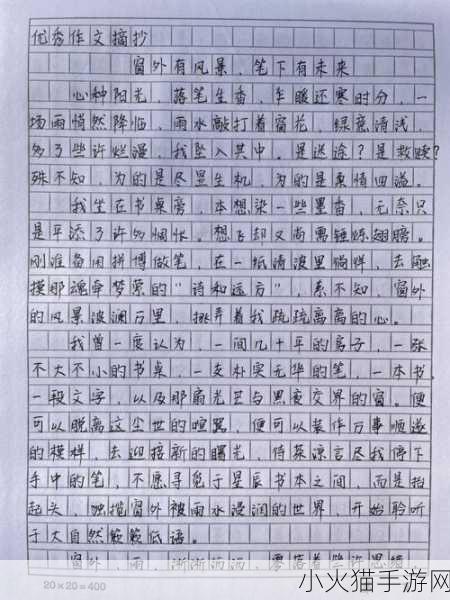 优秀作文摘抄
窗外有风景，笔下有未来
心种阳光，落笔生香，乍暖还寒时分，一
场雨悄然降临，雨水敲打着窗花，绿意清浅，
多了些许烂漫，我坠入其中。是迷途？是救赎？
殊不知，为的是尽显生机，为的是柔情四溢。
我坐在书桌旁，本想染一些墨香，无奈只
是平添了许多惆怅。想飞却又尚需锤炼翅膀。
刚准备用拼博做笔，在一纸清波里徜徉，去触
摸那魂牵梦萦的“诗和远方”，系不知，窗外
的风景波澜万里，拨弄着我疏疏离离的心。
我曾一度认为，一间几十年的房子，一张
不大不小的书桌，一支朴实无华的笔，一本书，
一段文字，以及那扇光芒与黑夜交界的窗。便
可以脱离这尘世的喧嚣，便可以装作万事顺遂
的模样，去迎接新的曙光，侍菜凉言尽我停下
手中的笔，不愿寻觅于星辰书本之间，而是抬
起头，独揽窗外被雨水浸润的世界，开始聆听
于大自然簌簌低语。
窗外，雨，淅淅沥沥，零落着些许思绪，
20×20=400
小火猫手游网